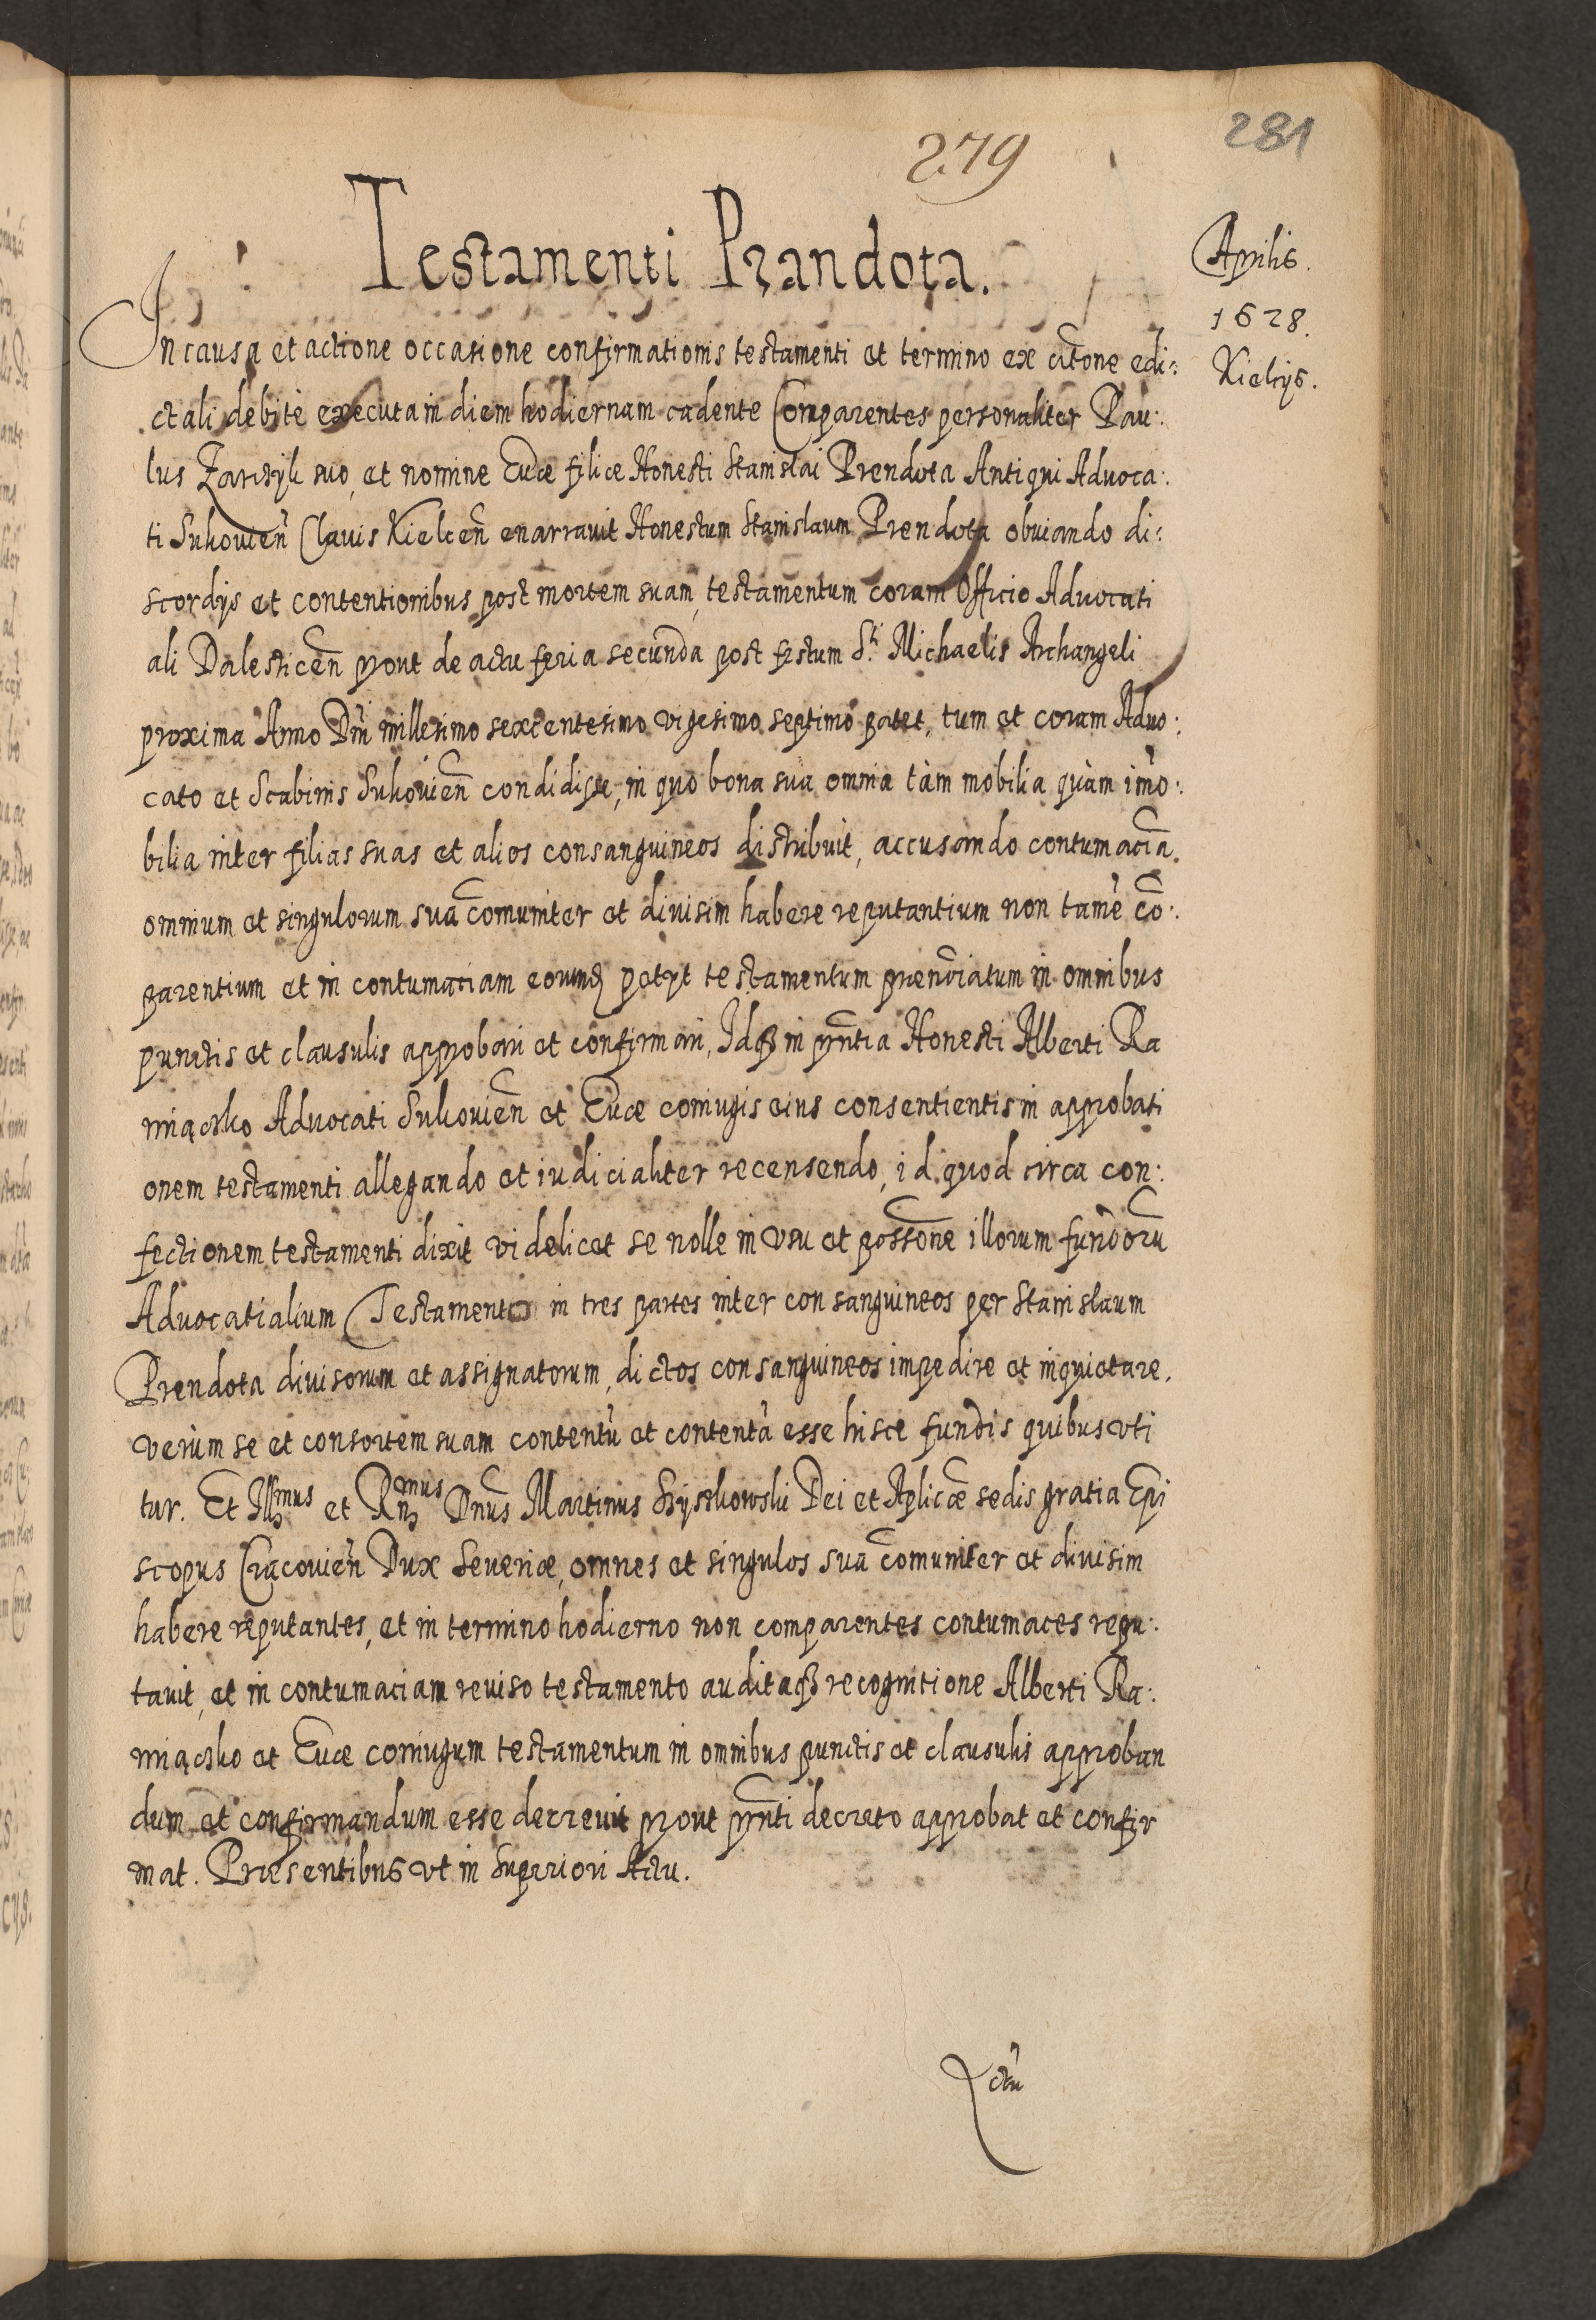 279
281
Testamenti Prandota.
Aprilis.
1628.
Kielcijs.
In causa et actione occasione confirmationis testamenti et termino ex citõne edi:
ctali debitè executa in diem hodiernam cadente Comparentes personaliter Pau:
lus suo, et nomine Evæ filiæ Honesti Stanislai Prendota Antiqui Advoca:
ti Sukovieñ Clavis Kielceñ enarravit Honestum Stanislaum Prendota obviando di:
scordijs et contentionibus post mortem suam, testamentum coram Officio Advocati
ali Dalesticeñ prout de actu feria secunda post festum S.ti Michaelis Archangeli
proxima Anno Dñi millesimo sexcentesimo vigesimo septimo patet, tum et coram Advo:
cato et Scabinis Sukovieñ condidisse, in quo bona sua omnia tàm mobilia quàm im̃o:
bilia inter filias suas et alios consanguineos distribuit, accusando contumaciã.
omnium et singulorum sua com̃uniter et divisim habere reputantium non tamẽ cõ:
parentium et in contumaciam eorund petijt testamentum prænõiatum in omnibus
punctis et clausulis approbari et confirmari, Idq3 in pñtia Honesti Alberti Ra
miącsko Advocati Sukovieñ et Evæ coniugis eius consentientis in approbati
onem testamenti allegando et iudicialiter recensendo, id quod circa con:
fectionem testamenti dixit videlicet se nolle in usu et possõne illorum fundorũ
Advocatialium Testamento in tres partes inter consanguineos per Stanislaum
Prendota divisorum et assignatorum, dictos consanguineos impedire et inquietare.
verùm se et consortem suam contentũ et contentã esse hisce fundis quibus uti
tur. Et Illmus et Rñmus Dñus Martinus Szyszkowski Dei et Aplicæ sedis gratia Epi
scopus Cracovieñ Dux Severiæ, omnes et singulos sua com̃uniter et divisim
habere reputantes, et in termino hodierno non comparentes contumaces repu:
tavit, et in contumaciam reviso testamento auditaq3 recognitione Alberti Ra:
miącsko et Evæ coniugum testamentum in omnibus punctis et clausulis approban
dum et confirmandum esse decrevit prout pñti decreto approbat et confir
mat. Præsentibus ut in Superiori Actu.